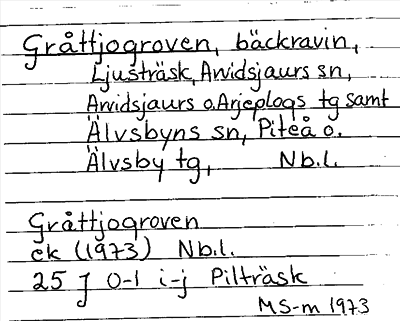 Gråttjogroven, bäckravin,
Ljusträsk, Arvidsjaurs sn,
Arvidsjaurs o. Arjeplogs tg samt
Älvsbyns sn, Piteå o.
Älvsby tg, Nb.l.
Gråttjogroven
ek (1973) Nb.l.
25 J 0-1 i-j Pilträsk
MS-m 1973